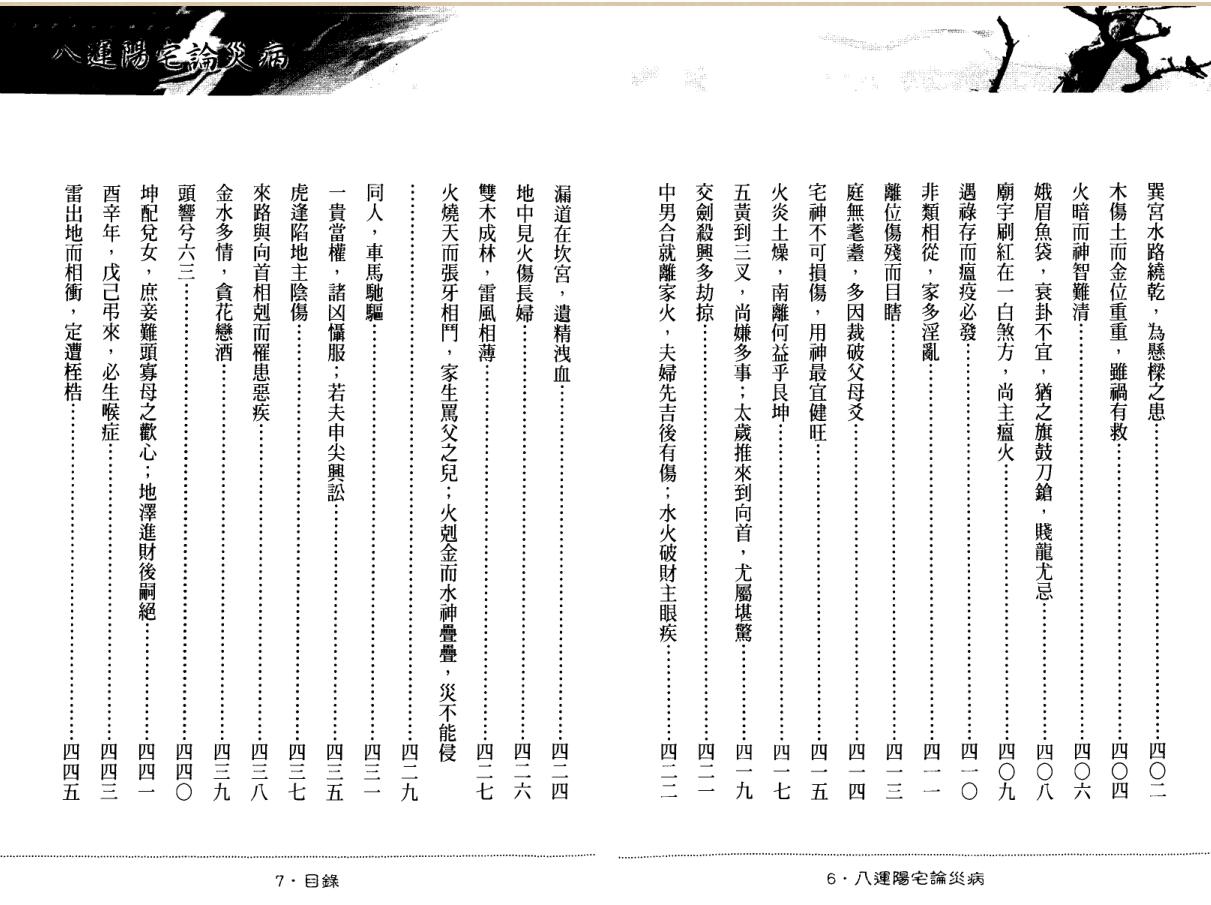 八運陽宅論災病
巽宮水路繞乾，為懸樑之患……四〇二
木傷土而金位重重，雖禍有救……四〇四
火暗而神智難清……四〇六
娥眉魚袋，衰卦不宜，猶之旗鼓刀鎗，賤龍尤忌……四〇八
廟宇刷紅在一白煞方，尚主瘟火……四〇九
遇祿存而瘟疫必發……四一〇
非類相從，家多淫亂……四一一
離位傷殘而目瞎……四一三
庭無耄耋，多因裁破父母爻……四一四
宅神不可損傷，用神最宜健旺……四一五
火炎土燥，南離何益乎艮坤……四一七
五黃到三叉，尚嫌多事；太歲推來到向首，尤屬堪驚……四一九
交劍殺興多劫掠……四二一
中男合就離家火，夫婦先吉後有傷；水火破財主眼疾……四二二
6・八運陽宅論災病
漏道在坎宮，遺精洩血……四二四
地中見火傷長婦……四二六
雙木成林，雷風相薄……四二七
火燒天而張牙相鬥，家生罵父之兒；火剋金而水神疊疊，災不能侵
……四二九
同人，車馬馳驅……四三一
一貴當權，諸凶懾服；若夫申尖興訟……四三五
虎逢陷地主陰傷……四三七
來路與向首相剋而罹患惡疾……四三八
金水多情，貪花戀酒……四三九
頭響兮六三……四四〇
坤配兌女，庶妾難頭寡母之歡心；地澤進財後嗣絕……四四一
酉辛年，戊己弔來，必生喉症……四四三
雷出地而相衝，定遭桎梏……四四五
7・目錄